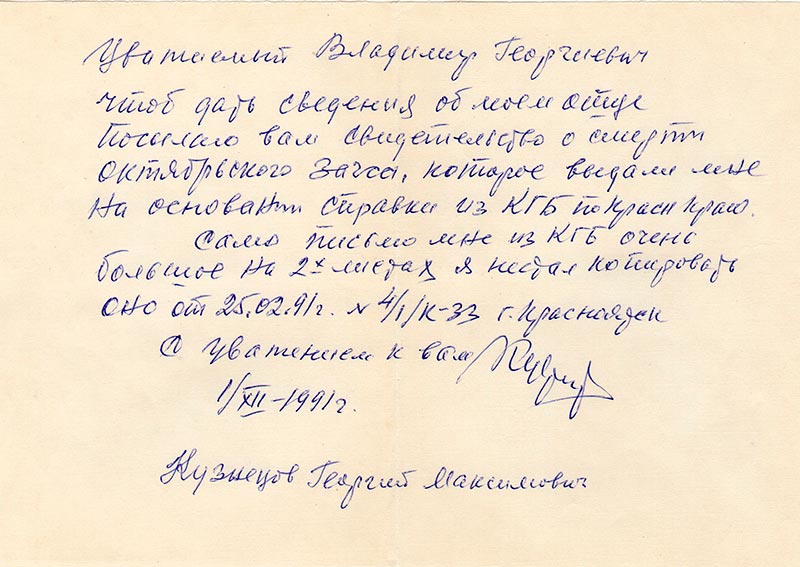 Уважаемый Владимир Георгиевич
чтоб дать сведения об моем отце
посылаю вам свидетельство о смерти
октябрьского Загса, которое выдали мне
на основании справки из КГБ по Красн Краю.
Само письмо мне из КГБ очень
большое на 2х листах я не стал копировать
оно от 25.02.91г. № 4/1/К-33 г. Красноярск
С уважением к вам
1/XII-1991г.
Кузнецов Георгий Максимович